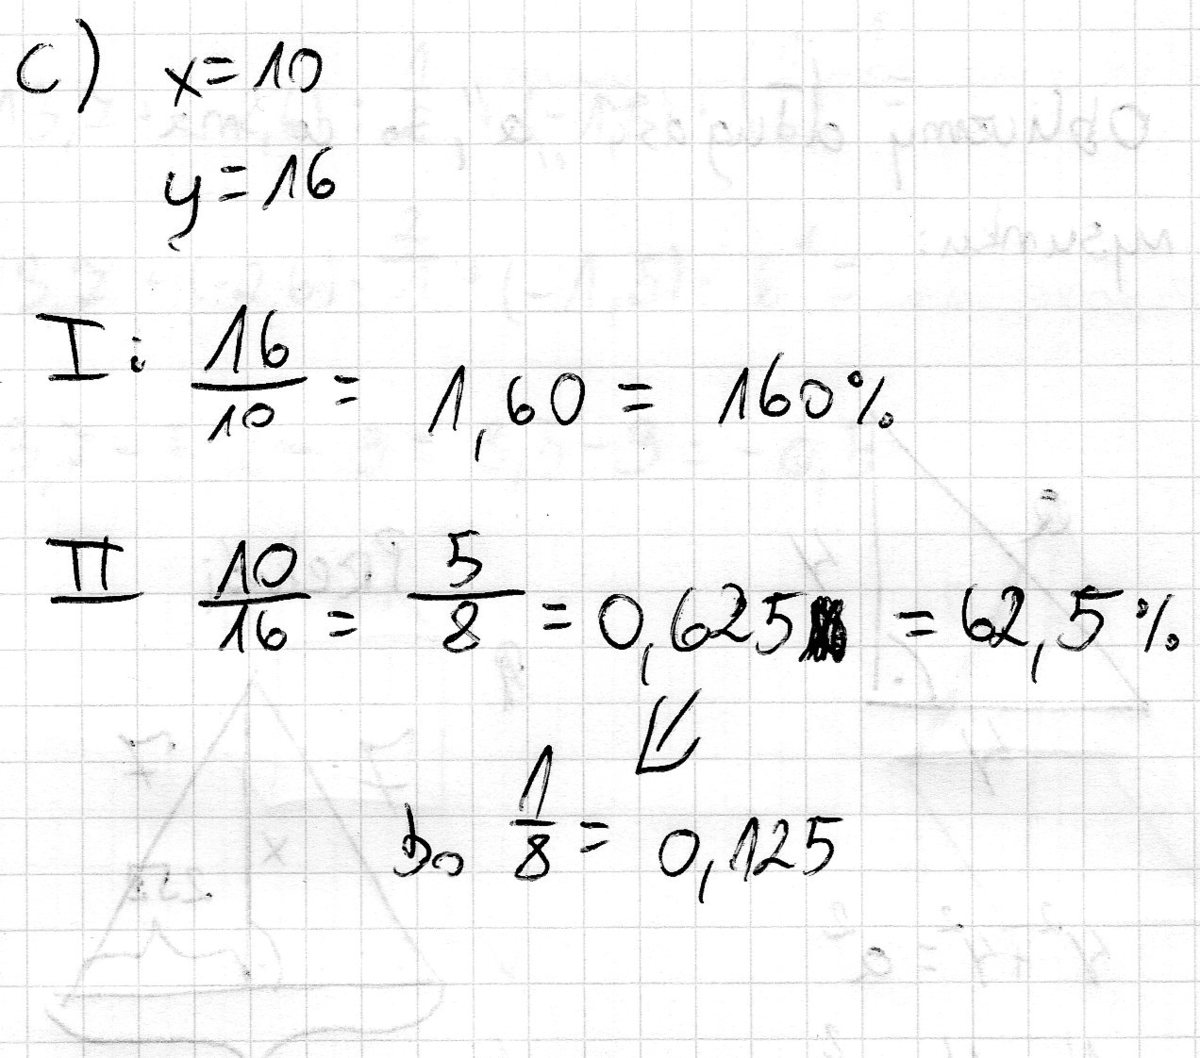 c) x=10
y=16
I: 16/10 = 1,60 = 160%
II 10/16 = 5/8 = 0,625 = 62,5%
bo 1/8 = 0,125